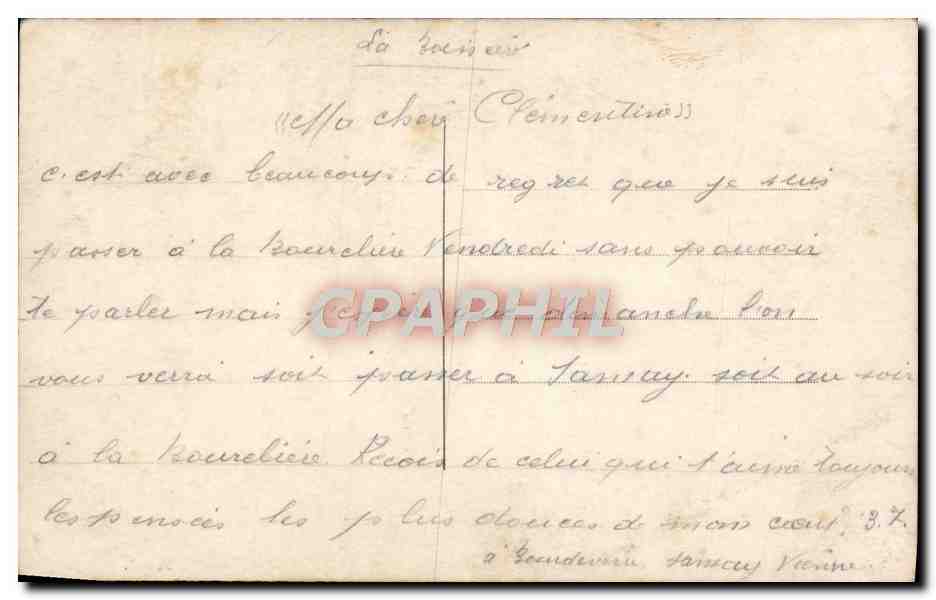 La
((Ma cheré Clémentine))
c'est avec beaucoup de regret que je suis
passer à la Bourelière Vendredi sans pouvoir
te parler mais j'espère que dimanche l'on
vous verra soit passer à Sansay soit au soir
à la Bourelière. Recois de celui qui t'aime toujours
les pensées les plus douces de mon cœur. 3.7.
à Sansay Vienne
CPAPHIL